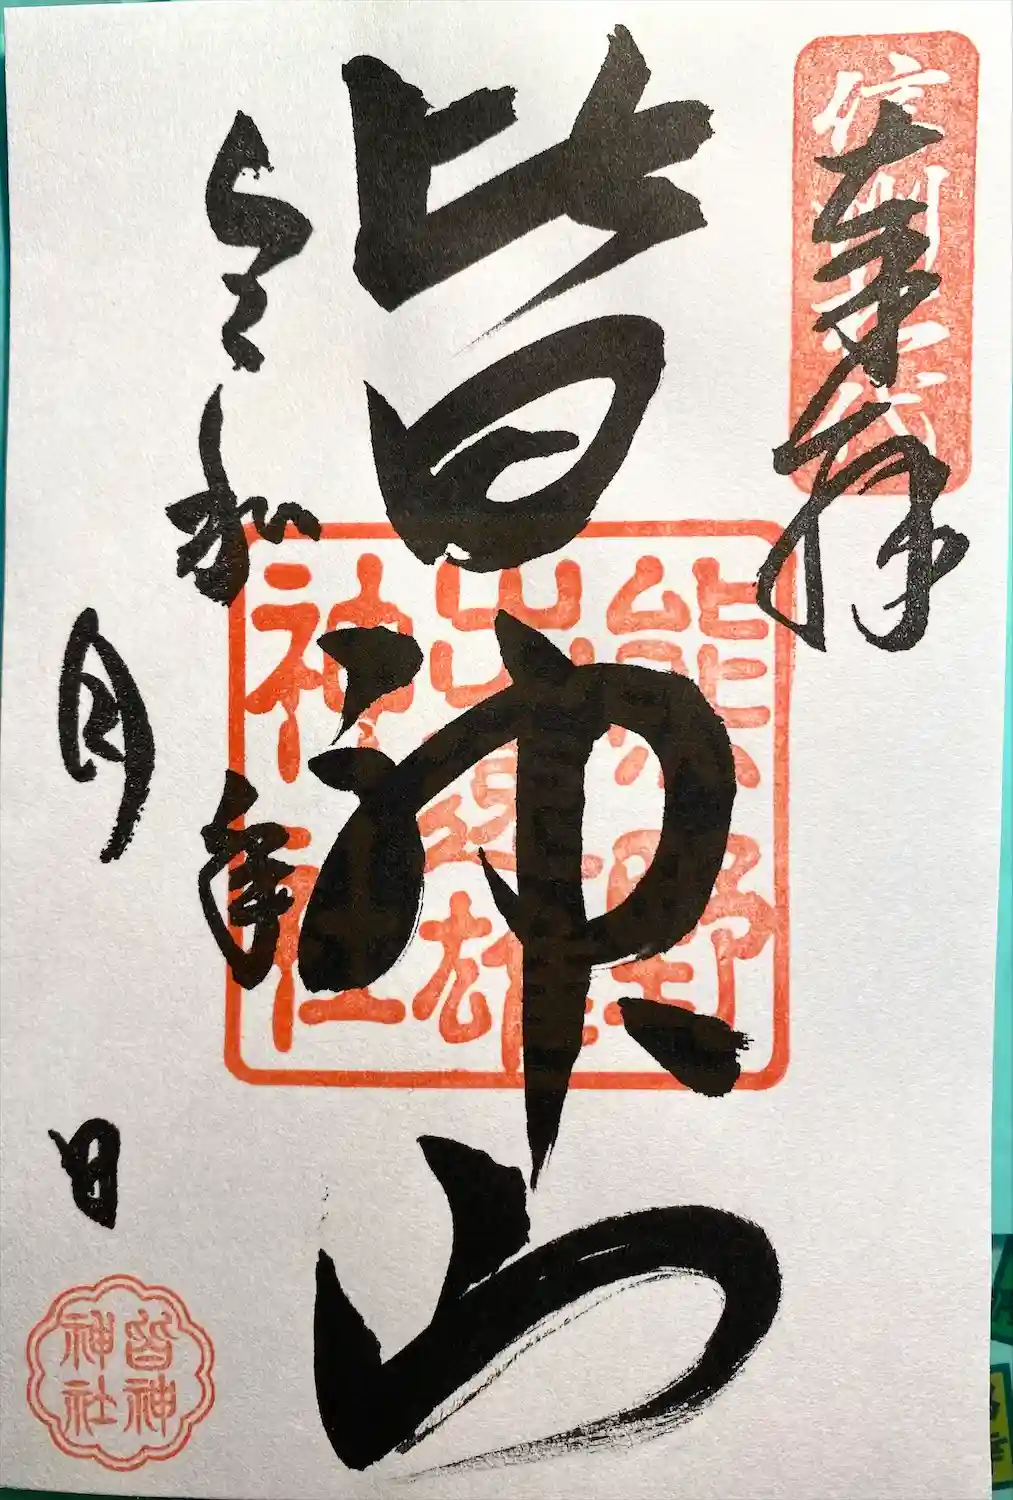 信州松代
奉拝
皆神山
熊野
出速雄
神社
令和 年
月 日
皆神
神社